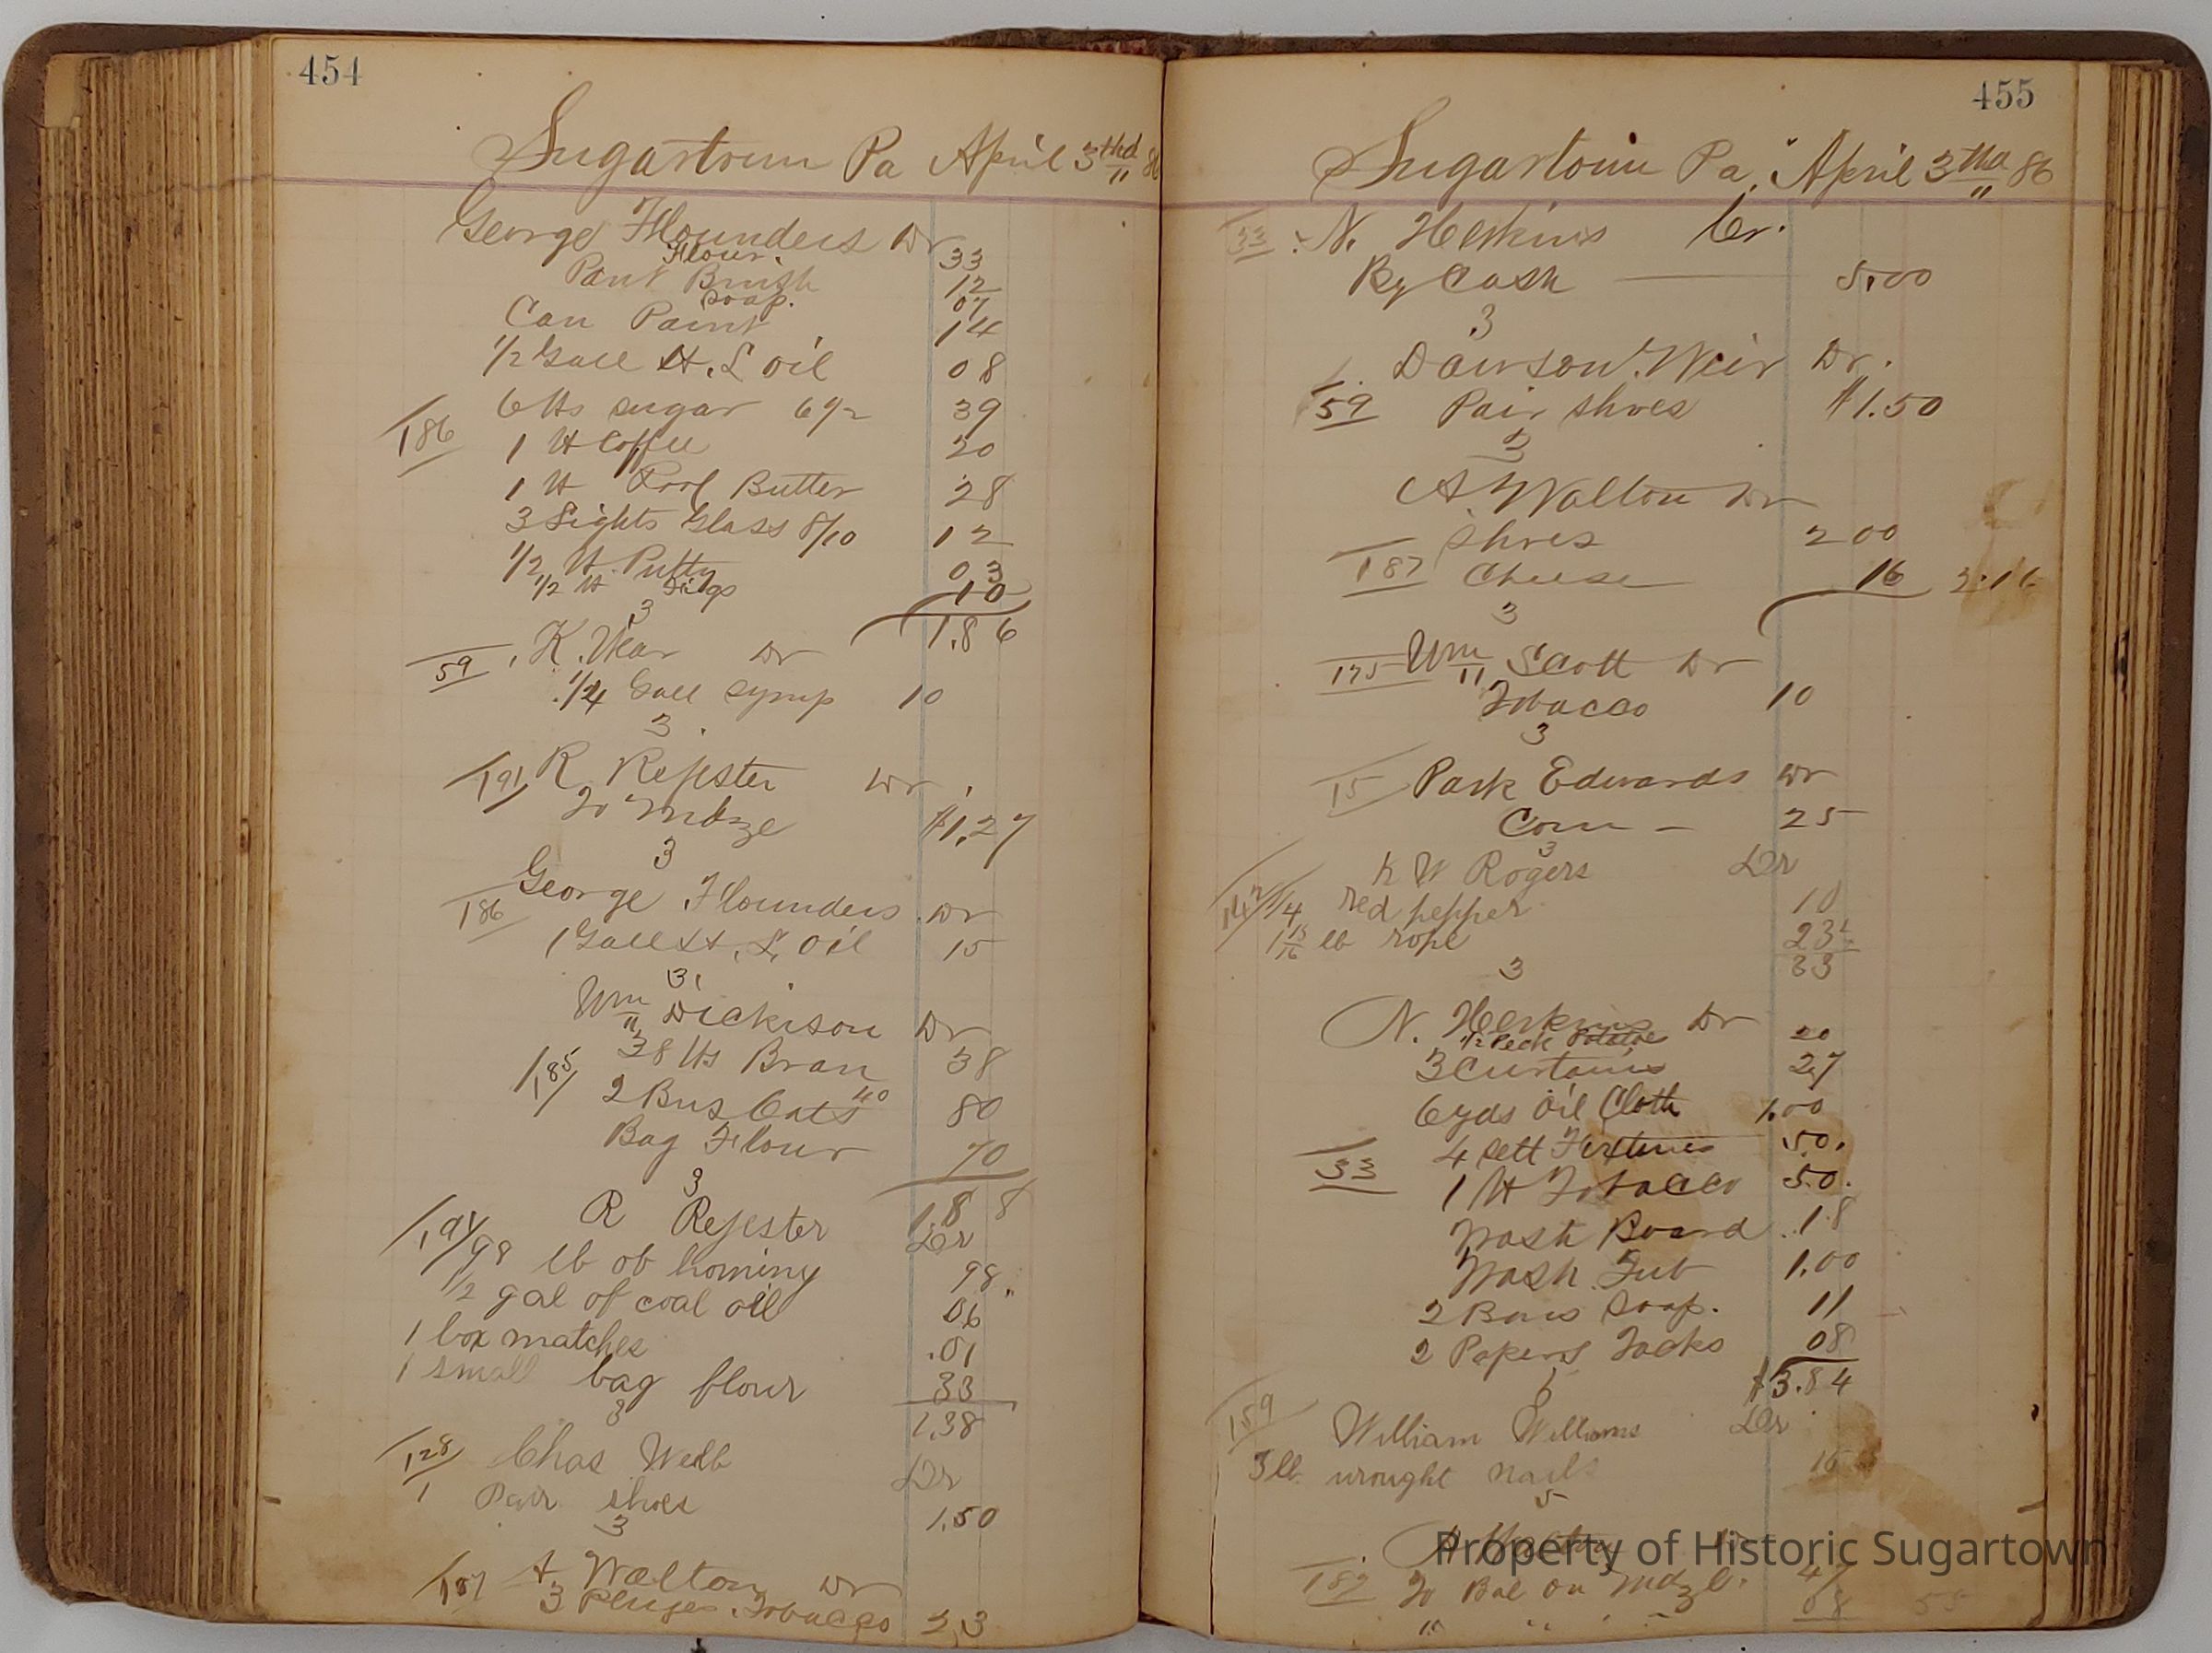 454
Sugartown Pa April 3thd 86
George Flounders Dr
Flour. 33
Paint Brush 12
Soap. 07
Can Paint 14
1/2 Gall H. L oil 08
6 lbs sugar 6 1/2 39
186
1 lb Coffee 20
1 lb Roll Butter 28
3 Lights Glass 8/10 12
1/2 lb Putty 03
1/2 lb Figs 10
3 1.86
59 K. Wear Dr
1/4 Gall Syrup 10
3
191 R Rejester Dr
To Mdze $1.27
3
George Flounders Dr
186
1 Gall H. L. Oil 15
3
Wm Dickison Dr
38 lbs Bran 38
185
2 Bus Oats 40 80
Bag Flour 70
3 1.88
R Rejester Dr
191
98 lb of hominy 98
1/2 gal of coal oil 06
1 box matches .01
1 small bag flour 33
3 1.38
128 Chas Webb Dr
1 Pair shoes 1.50
3
187 A Walton Dr
3 Pluges Tobacco 23
455
Sugartown Pa, April 3thd 86
33 N. Herkins Cr.
By Cash 5.00
3
Dawson Weir Dr.
59 Pair shoes $1.50
3
A Walton Dr
Shoes 2 00
187 Cheese 16 2.16
3
175 Wm Scott Dr
Tobacco 10
3
15 Park Edwards Dr
Corn – 25
3
K W Rogers Dr
142 1/4 red pepper 10
1 15/16 lb rope 23
33
3
N. Herkins Dr
1/2 Peck Potatoe 20
3 Curtains 27
6 yds Oil Cloth 1.00
4 sett Fixtures 50.
33
1 lb Tobacco 50.
Wash Board 18
Wash Tub 1.00
2 Bars Soap. 11
2 Papers Tacks 08
$3.84
159 William Williams Dr
3 lb wrought nails 15
5
A Walton Dr
187 To Bal on Mdze. 47
" " " 08 55
Property of Historic Sugartown